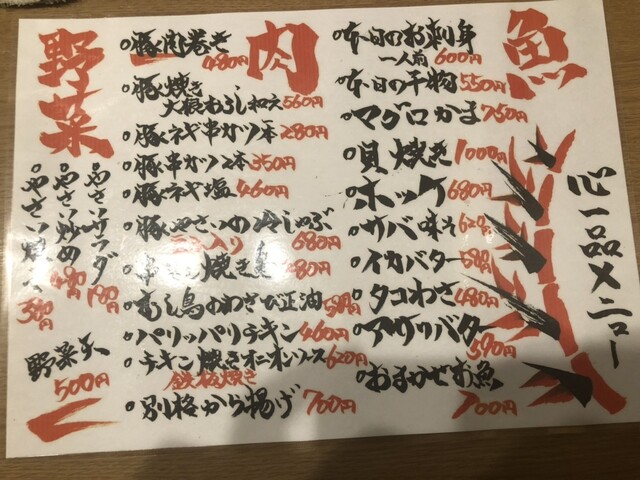 心一品メニュー
魚
本日のお刺身
一人前 600円
本日の干物 550円
マグロかま 750円
貝焼き 1000円
ホッケ 680円
サバ味そ 620円
イカバター 580円
タコわさ 480円
アサリバター 590円
おまかせお魚 700円
肉
豚肉巻き 480円
豚焼き
大根おろし和え 560円
豚ネギ串カツ1本 280円
豚串カツ2本 350円
豚ネギ塩 460円
豚やさいの冷しゃぶ 680円
焼き鳥
蒸し鳥のわさび正油
パリッパリチキン 460円
チキン焼きオニオンソース 620円
鉄板焼き
別格から揚げ 700円
野菜
やさいサラダ
やさい炒め 480円
やさい
野菜天
500円